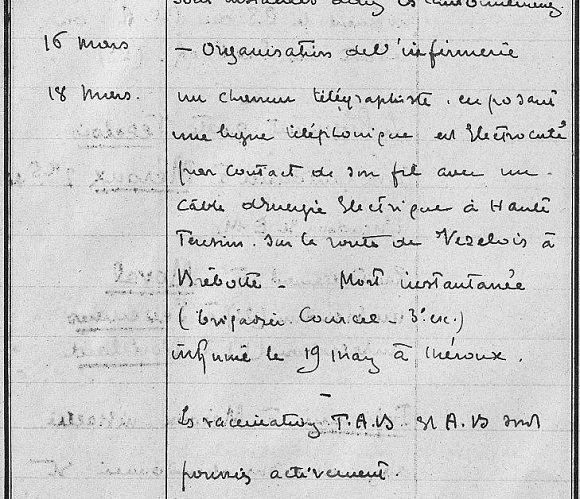 16 mars
— Organisation de l'infirmerie
18 Mars.
un chasseur télégraphiste. en posant
une ligne téléphonique est Electrocuté
par contact de son fil avec un
Câble d'Energie Electrique à Haute
Tension. sur la route de Vezelois à
Brebotte — Mort instantanée
(brigadier — 3e esc.)
inhumé le 19 mars à Méroux.
Les vaccinations T.A.B. et A.B sont
activement.